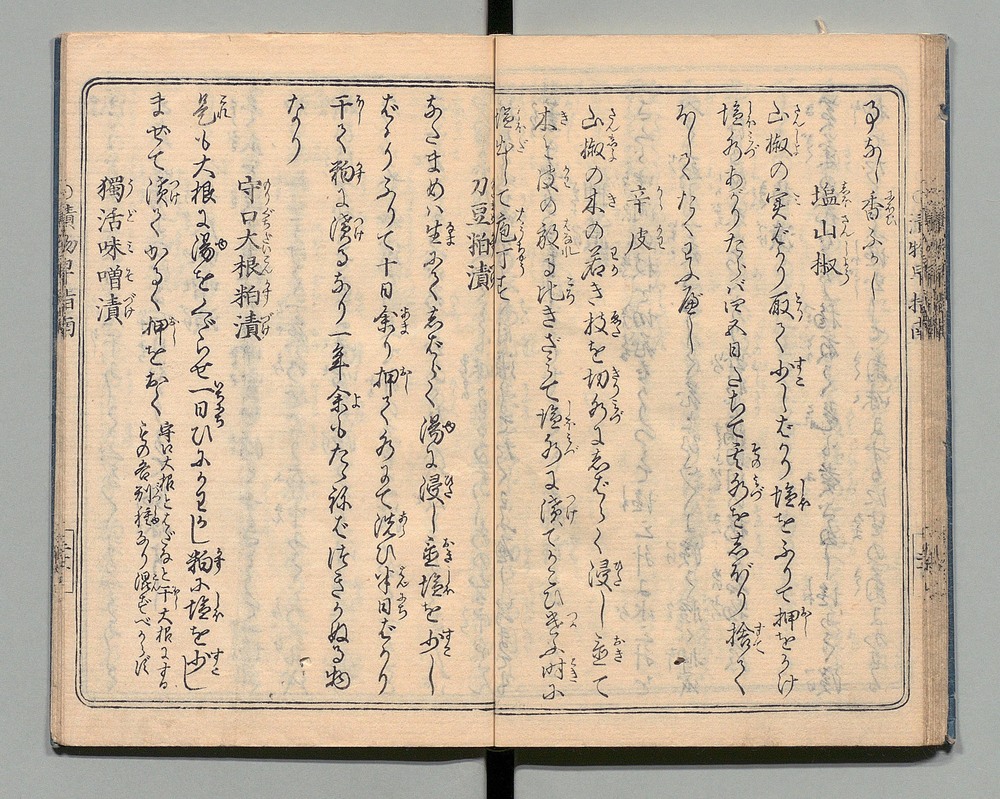 事なし香ふかし
塩山椒
山椒の実ばかり取て少しばかり塩をふりて押をかけ
塩水あがりたらバ四五日たちて其水をしぼり捨てく
ほしてたくはふべし
辛皮
山椒の木の若き枝を切水にしばらく浸し置て
木と皮の放る比きざみて塩水に漬てかこひ遣ふ時に
塩出して庖丁す
刀豆粕漬
なたまめハ生にてしばらく湯に浸し置塩を少し
ばかりふりて十日余り押て水にて洗ひ半日ばかり
干て粕に漬るなり一年余もたゝねばつきかぬる物
なり
守口大根粕漬
是も大根に湯をくゞらせ一日ひにかわし粕に塩を少し
まぜて漬てかるく押をおく
守口大根とはだなと干大根にする
もの各別種なり混ずべからず
獨活味噌漬
漬物早指南
漬物早指南